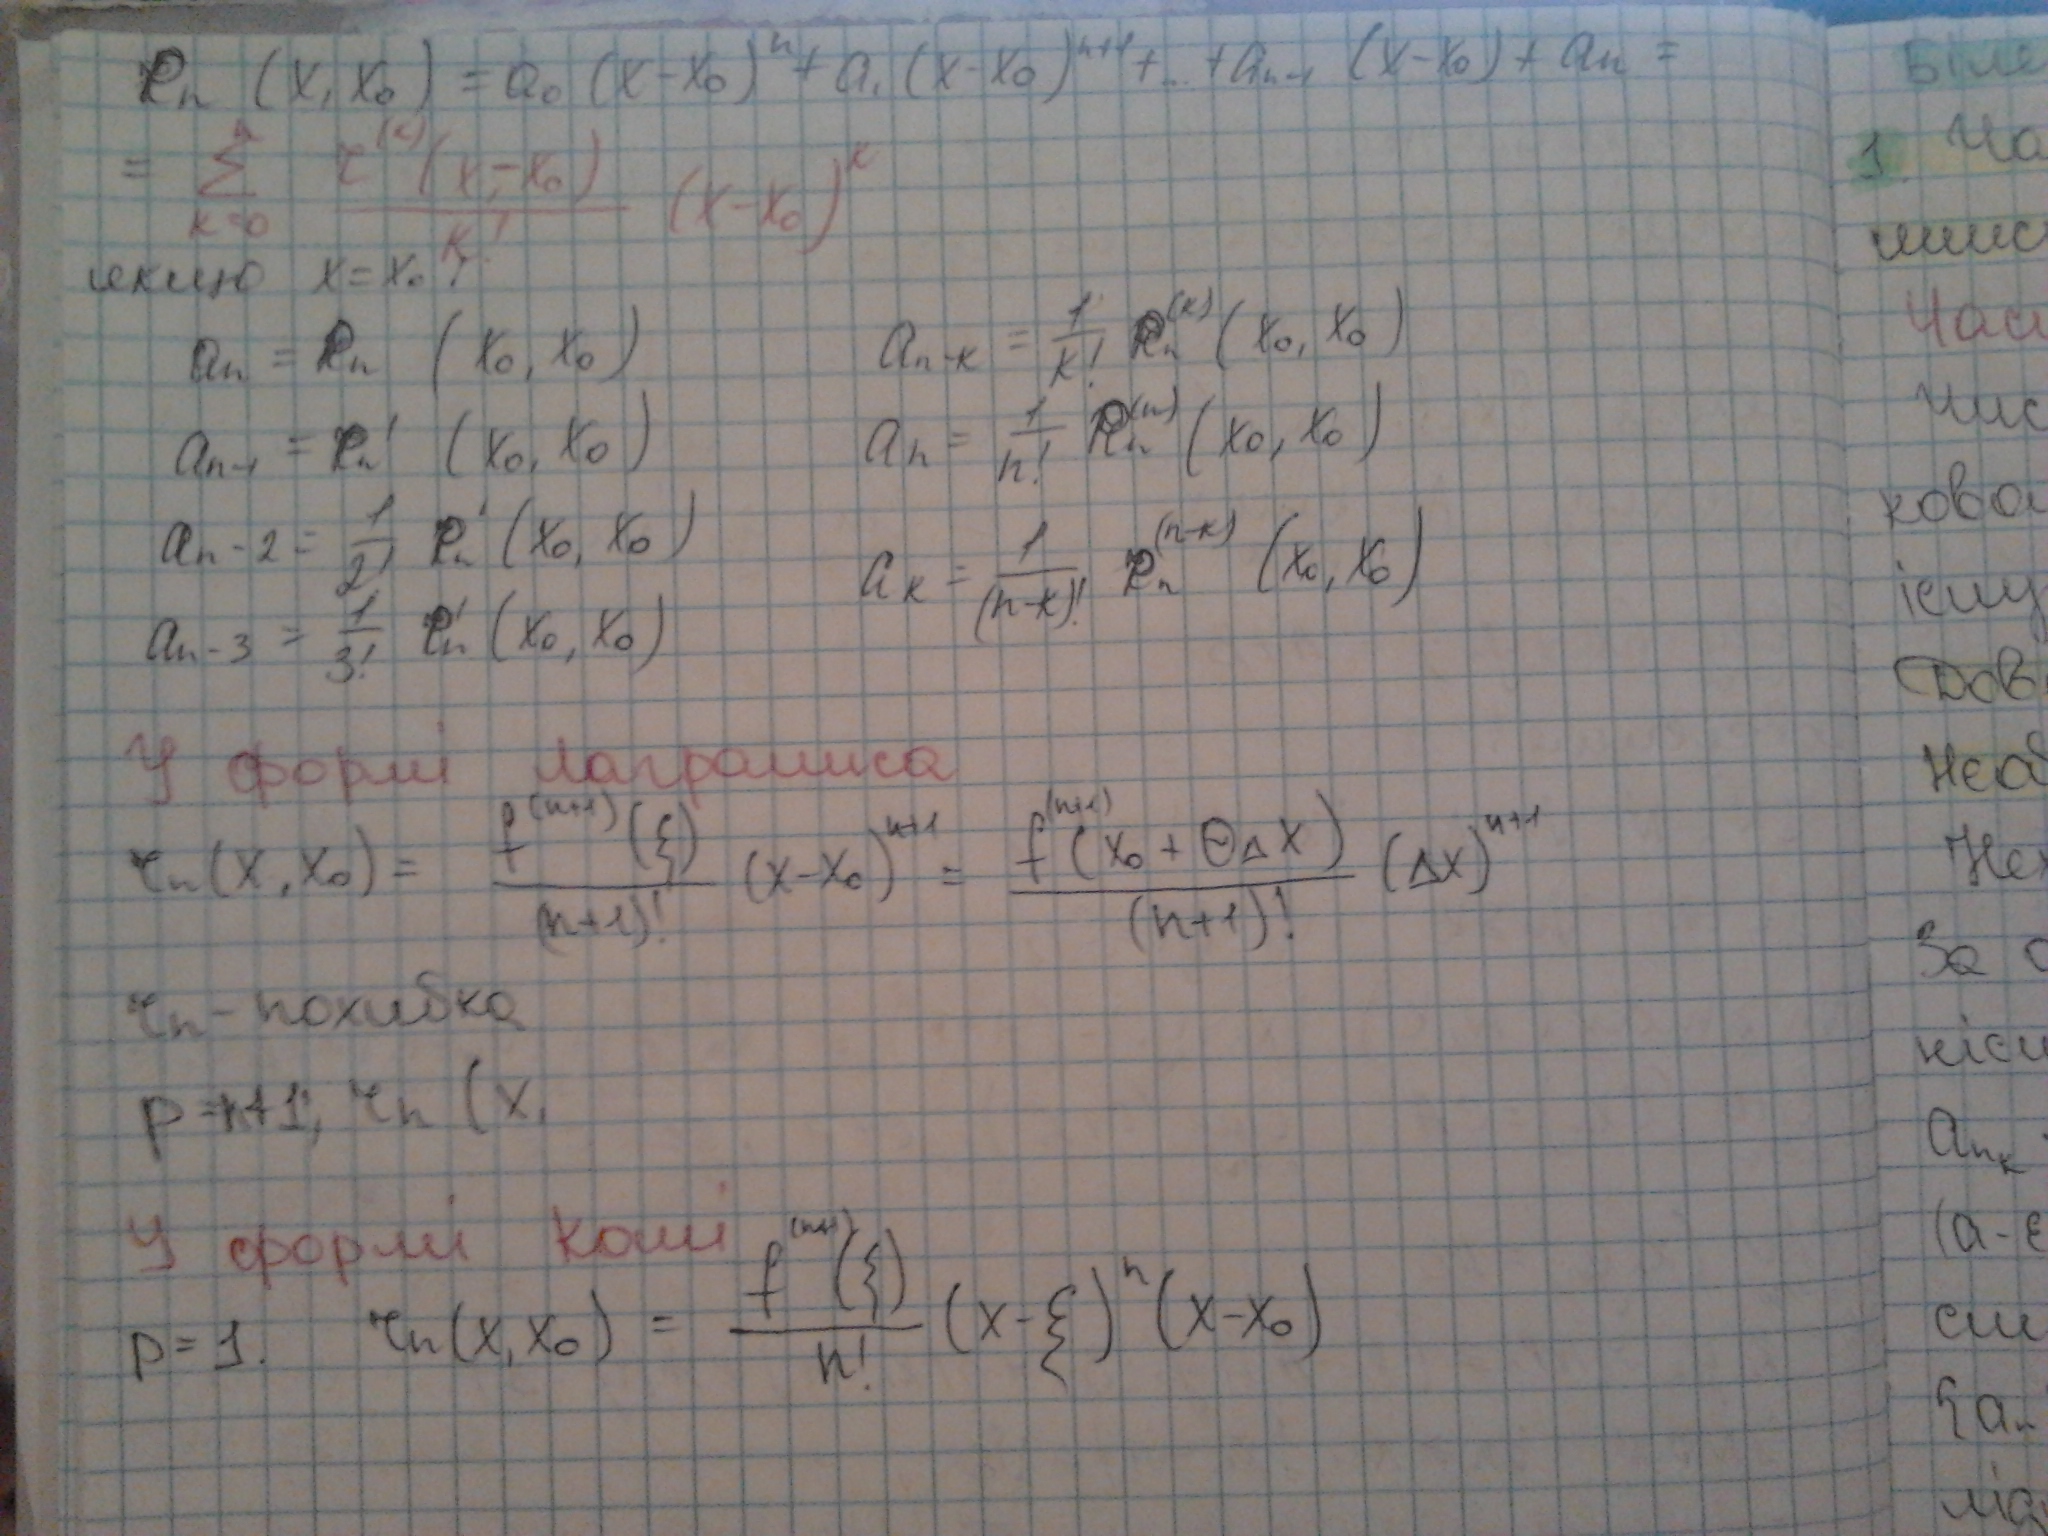 Pn (x, x₀) = a₀ (x-x₀)ⁿ + a₁ (x-x₀)ⁿ⁺¹ + ... + aₙ₋₁ (x-x₀) + aₙ =
= Σ_{k=0}^{n} r^{(k)}(x,-x₀) / k! (x-x₀)^k
якщо x = x₀,
aₙ = Pₙ (x₀, x₀)
aₙ₋₁ = Pₙ' (x₀, x₀)
aₙ₋₂ = 1/2! Pₙ' (x₀, x₀)
aₙ₋₃ = 1/3! Pₙ' (x₀, x₀)
aₙ₋ₖ = 1/k! Pₙ^{(k)} (x₀, x₀)
aₙ = 1/n! Pₙ^{(n)} (x₀, x₀)
aₖ = 1/(n-k)! Pₙ^{(n-k)} (x₀, x₀)
У формі лагранжа
rₙ(x, x₀) = f^{(n+1)}(ξ) / (n+1)! (x-x₀)ⁿ⁺¹ = f^{(n+1)}(x₀ + ΘΔx) / (n+1)! (Δx)ⁿ⁺¹
rₙ - похибка
p = n+1; rₙ (x,
У формі Коші
p = 1. rₙ(x, x₀) = f^{(n+1)}(ξ) / n! (x-ξ)ⁿ (x-x₀)
Біле
1. Ча
Час
чис
кова
Дов
Неа
Нех
За
aₙₖ
(a-ε
{aₙ